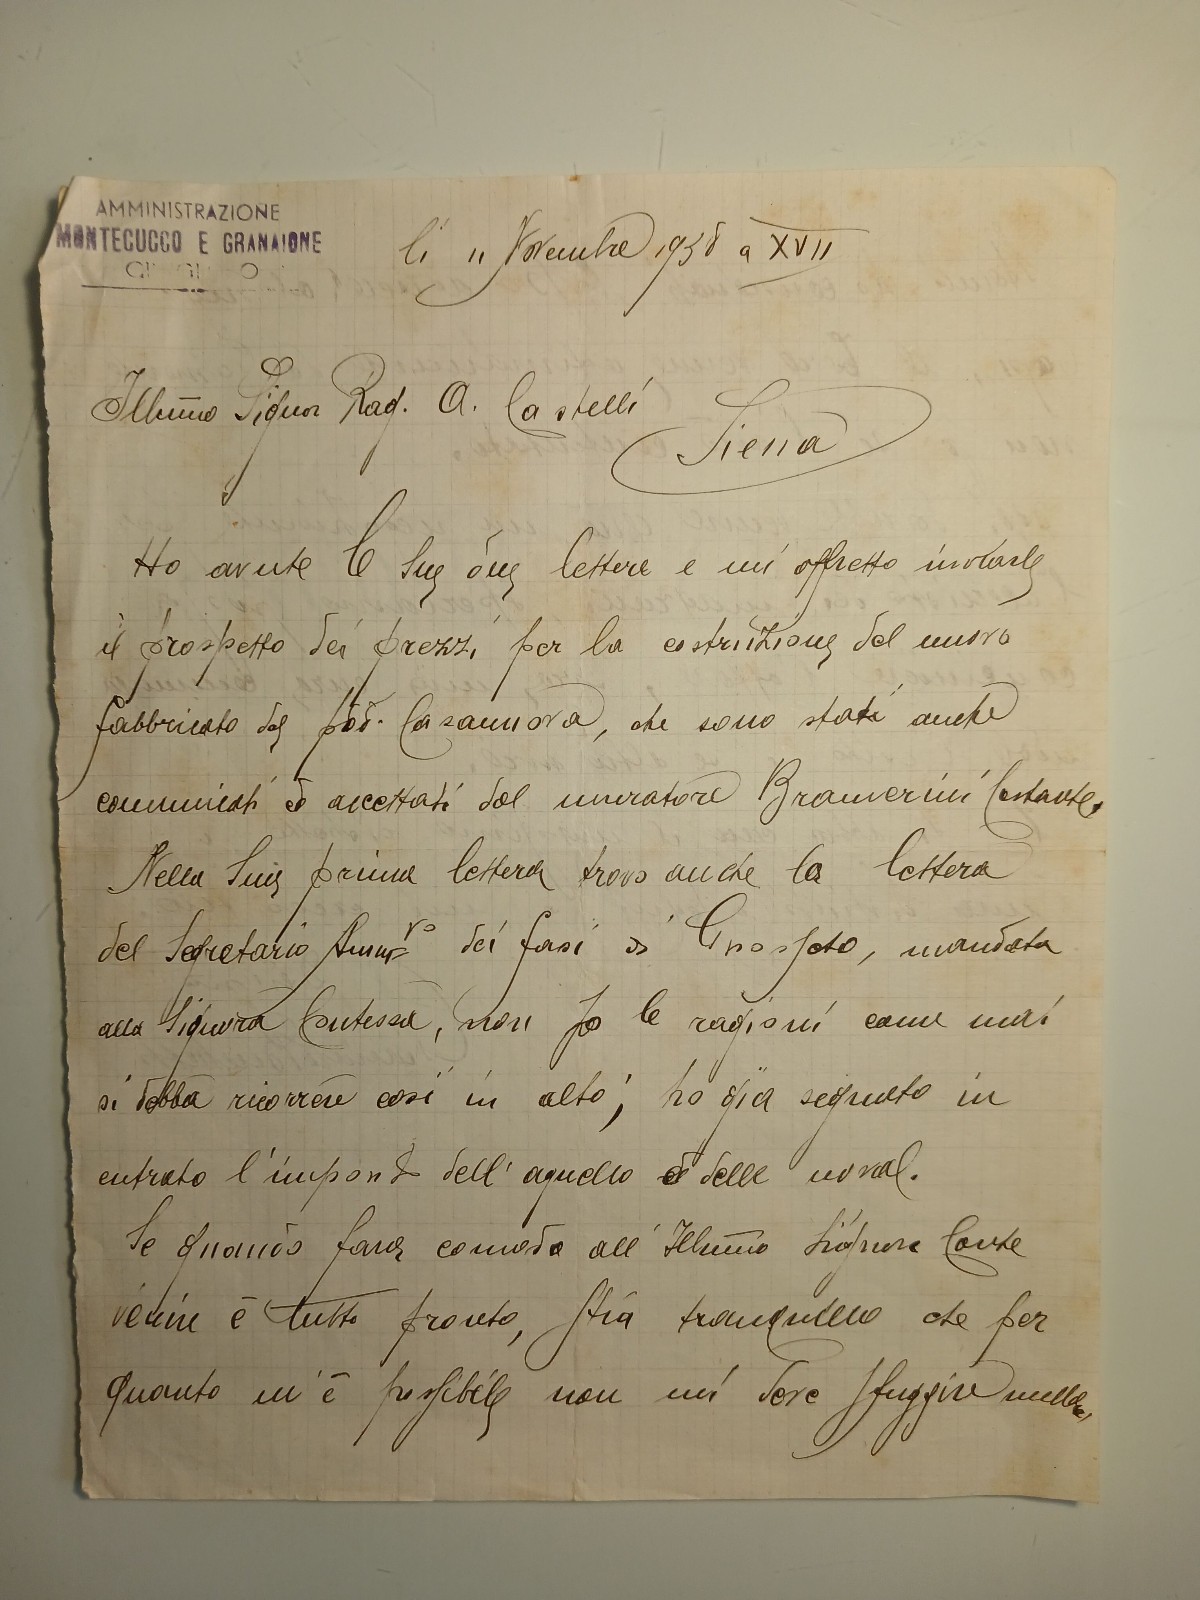 AMMINISTRAZIONE
MONTECUCCO E GRANAIONE
li 11 Novembre 1938 a XVII
Illumo Signor Rag. A. Castelli
Siena
Ho avute le Sue due lettere e mi affretto inviarle
il prospetto dei prezzi per la costruzione del nuovo
fabbricato del pod. Casannova, che sono stati anche
communicati ed accettati dal muratore Bramerini Costante.
Nella Sua prima lettera trovo anche la lettera
del Segretario Ammvo dei fasi di Grosseto, mandata
alla Signora Contessa, non so le ragioni come mai
si debba ricorrere così in alto; ho già segnato in
entrata l'import dell' agnello e delle noval.
Se quando farà comodo all' Illumo Signor Conte
venire è tutto pronto, stia tranquillo che per
quanto m'è possibile non mi deve sfuggire nulla,